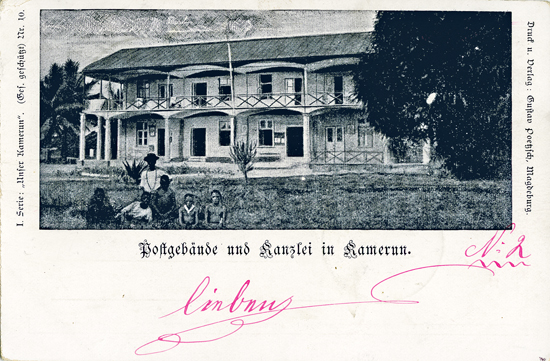 I. Serie: „Unser Kamerun". (Ges. geschützt) Nr. 16.
Druck u. Verlag: Gustav Poetzsch, Magdeburg.
Postgebände und Kanzlei in Kamerun.
No 2
lieben